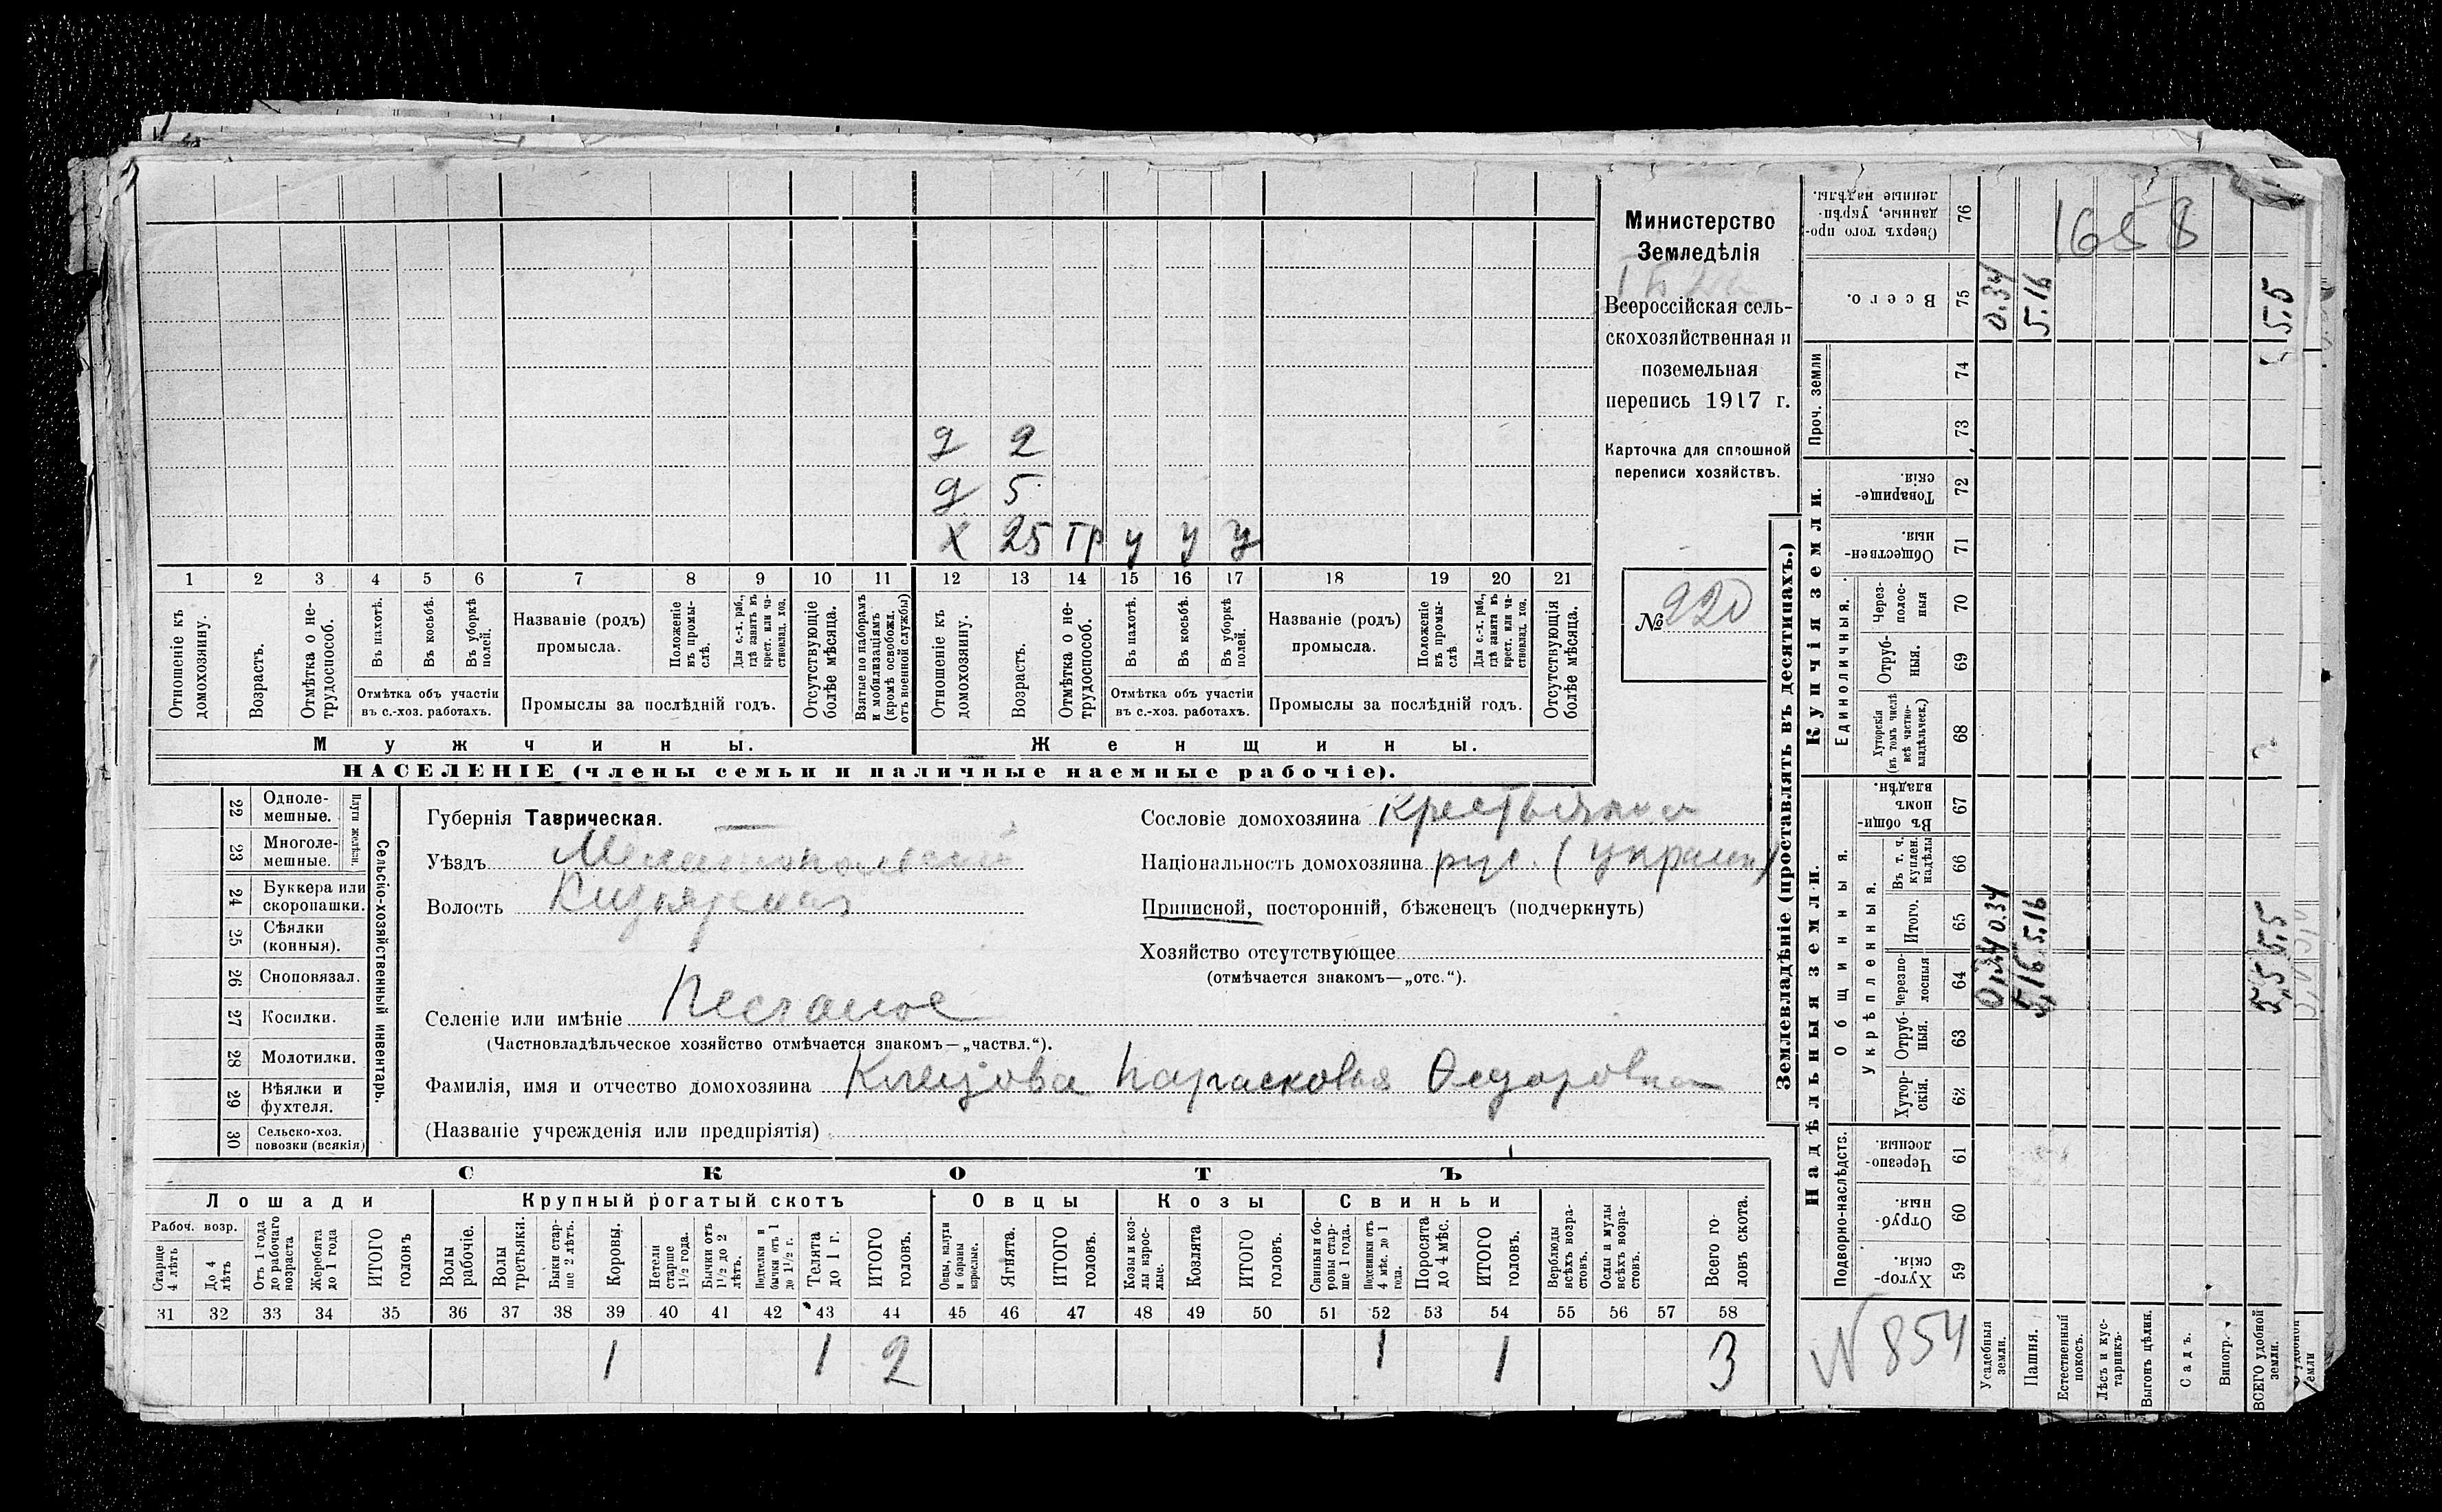 д 2
д 5
х 25 тр у у у
1 2 3 4 5 6 7 8 9 10 11 12 13 14 15 16 17 18 19 20 21
Отношеніе къ домохозяину.
Возрастъ.
Отмѣтка о не-трудоспособ.
Въ пахотѣ.
Въ косьбѣ.
Въ уборкѣ полей.
Отмѣтка объ участіи
въ с.-хоз. работахъ.
Названіе (родъ)
промысла.
Положеніе въ промы-слѣ.
Для с.-х. раб., гдѣ занятъ въ крест. или ча-стновлад. хоз.
Промыслы за послѣдній годъ.
Отсутствующіе болѣе мѣсяца.
Взятые по наборамъ и мобилизаціямъ (кромѣ освобожд. отъ военной службы)
Отношеніе къ домохозяину.
Возрастъ.
Отмѣтка о не-трудоспособ.
Въ пахотѣ.
Въ косьбѣ.
Въ уборкѣ полей.
Отмѣтка объ участіи
въ с.-хоз. работахъ.
Названіе (родъ)
промысла.
Положеніе въ промы-слѣ
Для с.-х. раб., гдѣ занята въ крест. или ча-стновлад. хоз.
Промыслы за послѣдній годъ.
Отсутствующія болѣе мѣсяца.
Мужчины.
Женщины.
НАСЕЛЕНІЕ (члены семьи и наличные наемные рабочіе).
Министерство
Земледѣлія
Всероссійская сель-
скохозяйственная и
поземельная
перепись 1917 г.
Карточка для сплошной
переписи хозяйствъ.
№ 220
22 Одноле-мешные.
23 Многоле-мешные.
Плуги желѣзн.
24 Буккера или скоропашки.
25 Сѣялки (конныя).
26 Сноповязал.
27 Косилки.
28 Молотилки.
29 Вѣялки и фухтеля.
30 Сельско-хоз. повозки (всякія)
Сельско-хозяйственный инвентарь.
Губернія Таврическая.
Уѣздъ Мелитопольский
Волость Кизиярская
Селеніе или имѣніе Песчаное
(Частновладѣльческое хозяйство отмѣчается знакомъ—„частвл.“).
Фамилія, имя и отчество домохозяина Клецова Парасковья Федоровна
(Названіе учрежденія или предпріятія)
Сословіе домохозяина крестьянка
Національность домохозяина рус. (украин)
Приписной, посторонній, бѣженецъ (подчеркнуть)
Хозяйство отсутствующее
(отмѣчается знакомъ—„отс.“).
СКОТЪ
Лошади
Крупный рогатый скотъ
Овцы
Козы
Свиньи
Рабоч. возр.
Старше 4 лѣтъ
До 4 лѣтъ
Отъ 1 года до рабочаго возраста
Жеребята до 1 года
ИТОГО головъ
Волы рабочіе.
Волы третьяки.
Быки стар-ше 2 лѣтъ.
Коровы.
Нетели старше 1½ года.
Бычки отъ 1½ до 2 лѣтъ.
Подтелки и бычки отъ 1 до 1½ г.
Телята до 1 г.
ИТОГО головъ.
Овцы, валухи и бараны взрослые.
Ягнята.
ИТОГО головъ.
Козы и коз-лы взрос-лые.
Козлята
ИТОГО головъ.
Свиньи и бо-ровы стар-ше 1 года.
Подсвинки отъ 4 мѣс. до 1 года.
Поросята до 4 мѣс.
ИТОГО головъ.
Верблюды всѣхъ возра-стовъ.
Ослы и мулы всѣхъ возра-стовъ.
Всего го-ловъ скота.
31 32 33 34 35 36 37 38 39 40 41 42 43 44 45 46 47 48 49 50 51 52 53 54 55 56 57 58
1 1 2 1 1 3
Землевладѣніе (проставлять въ десятинахъ.)
Купчія земли.
Надѣльныя земли.
Сверхъ того про-данные, укрѣп-ленные надѣлы. 76
1658
Всего. 75
0.34
5.16
5.5
Проч. земли
74
73
Товарище-скія 72
Обществен-ныя. 71
Единоличныя.
Через-полос-ныя 70
Отруб-ныя. 69
Хуторскія (въ томъ числѣ всѣ частно-владѣльческ.) 68
Общинныя.
Въ общин-номъ владѣн. 67
Укрѣпленныя.
Въ т. ч. куплен. надѣлы 66
Итого. 65
0.34
5.16
5.5
Черезпо-лосныя 64
0,34
5,16
5,5
Отруб-ныя. 63
Хутор-скія. 62
Подворно-наслѣдств.
Черезпо-лосныя. 61
Отруб-ныя. 60
Хутор-скія. 59
N 854
Усадебныя земли.
Пашня.
Естественный покосъ.
Лѣсъ и кус-тарникъ.
Выгонъ цѣлин.
Садъ.
Виногр.
ВСЕГО удобной земли.